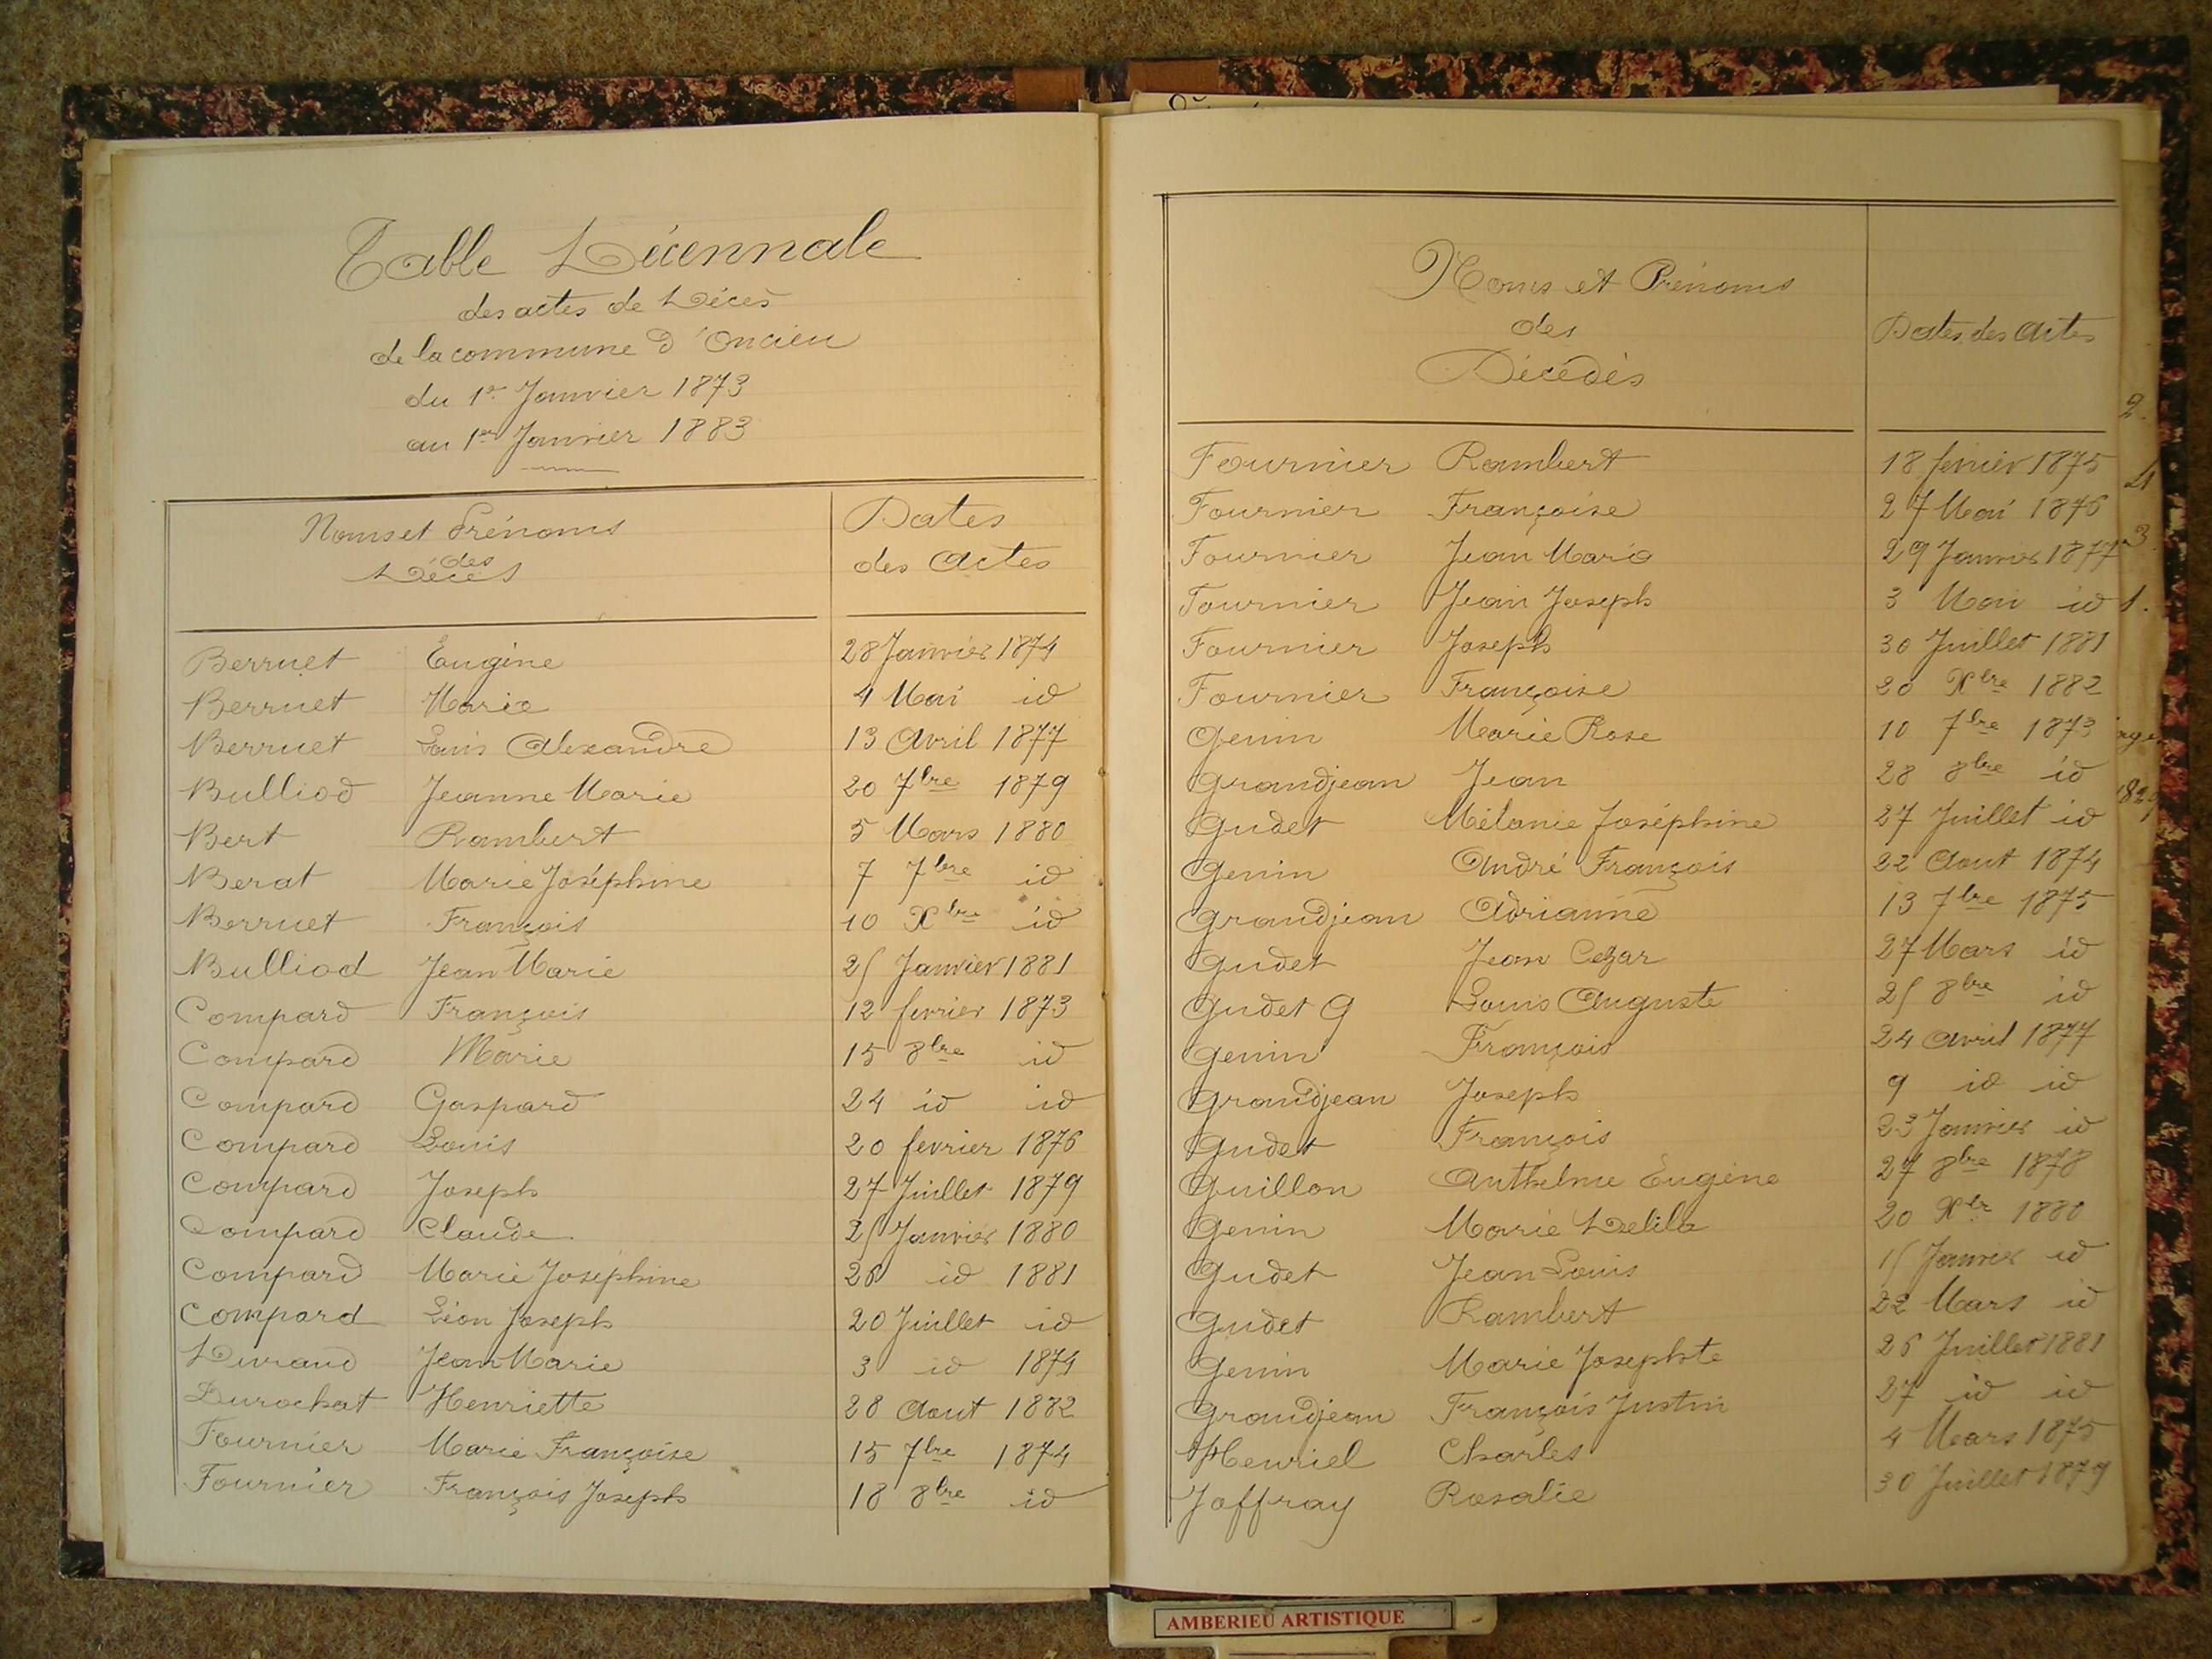 Table Décennale
des actes de Décès
de la commune d'Oncieu
du 1er Janvier 1873
au 1er Janvier 1883
Noms et Prénoms
des
Décès
Dates
des Actes
Berruet Eugène 28 Janvier 1874
Berruet Marie 4 Mai id
Berruet Louis Alexandre 13 Avril 1877
Bulliod Jeanne Marie 20 7bre 1879
Bert Rambert 5 Mars 1880
Berat Marie Joséphine 7 7bre id
Berruet François 10 Xbre id
Bulliod Jean Marie 25 Janvier 1881
Compard François 12 fevrier 1873
Compard Marie 15 8bre id
Compard Gaspard 24 id id
Compard Louis 20 fevrier 1876
Compard Joseph 27 Juillet 1879
Compard Claude 25 Janvier 1880
Compard Marie Joséphine 26 id 1881
Compard Léon Joseph 20 Juillet id
Durand Jean Marie 3 id 1874
Durochat Henriette 28 Aout 1882
Fournier Marie Françoise 15 7bre 1874
Fournier François Joseph 18 8bre id
Noms et Prénoms
des
Décédés
Dates des Actes
Fournier Rambert 18 fevrier 1875
Fournier Françoise 27 Mai 1876
Fournier Jean Marie 29 Janvier 1877
Fournier Jean Joseph 3 Mai id
Fournier Joseph 30 Juillet 1881
Fournier Françoise 20 Xbre 1882
Genin Marie Rose 10 7bre 1873
Grandjean Jean 28 8bre id
Gudet Mélanie Joséphine 27 Juillet id
Genin André François 22 Aout 1874
Grandjean Adrianne 13 7bre 1875
Gudet Jean Cezar 27 Mars id
Gudet G Louis Auguste 25 8bre id
Genin François 24 Avril 1877
Grandjean Joseph 9 id id
Gudet François 23 Janvier id
Guillon Anthelme Eugène 27 8bre 1878
Genin Marie Delila 20 Xbr 1880
Gudet Jean Louis 15 Janvier id
Gudet Rambert 22 Mars id
Genin Marie Josephte 26 Juillet 1881
Grandjean François Justin 27 id id
Henriel Charles 4 Mars 1875
Joffray Rosalie 30 Juillet 1879
2.
4
3
1.
AMBERIEU ARTISTIQUE